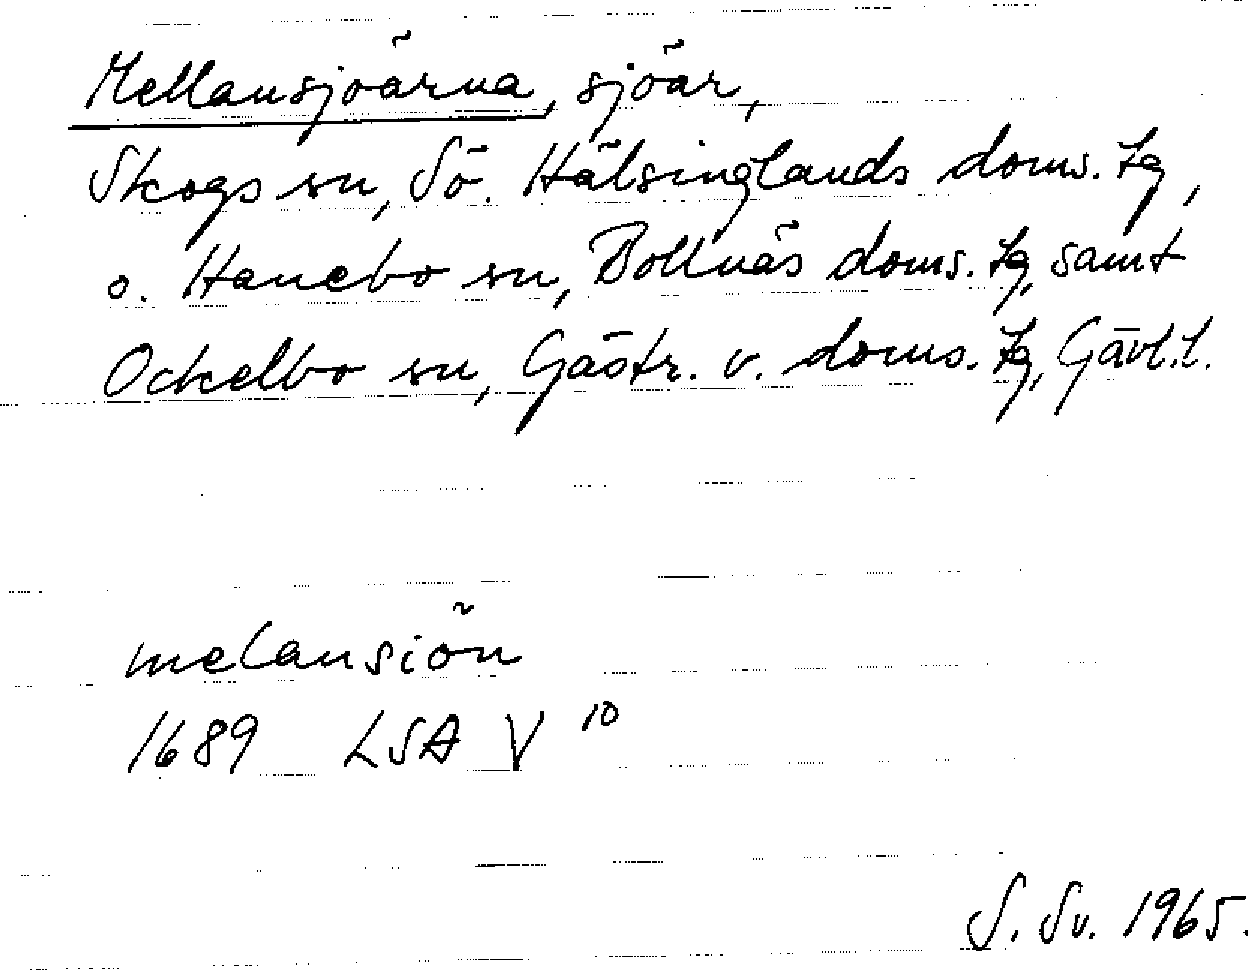 Mellansjöarna, sjöar,
Skogs sn, Sö. Hälsinglands doms. tg,
o. Hanebo sn, Bollnäs doms. tg, samt
Ockelbo sn, Gästr. v. doms. tg, Gävl.l.
melansiön
1689 LSA V 10
S. Sv. 1965.